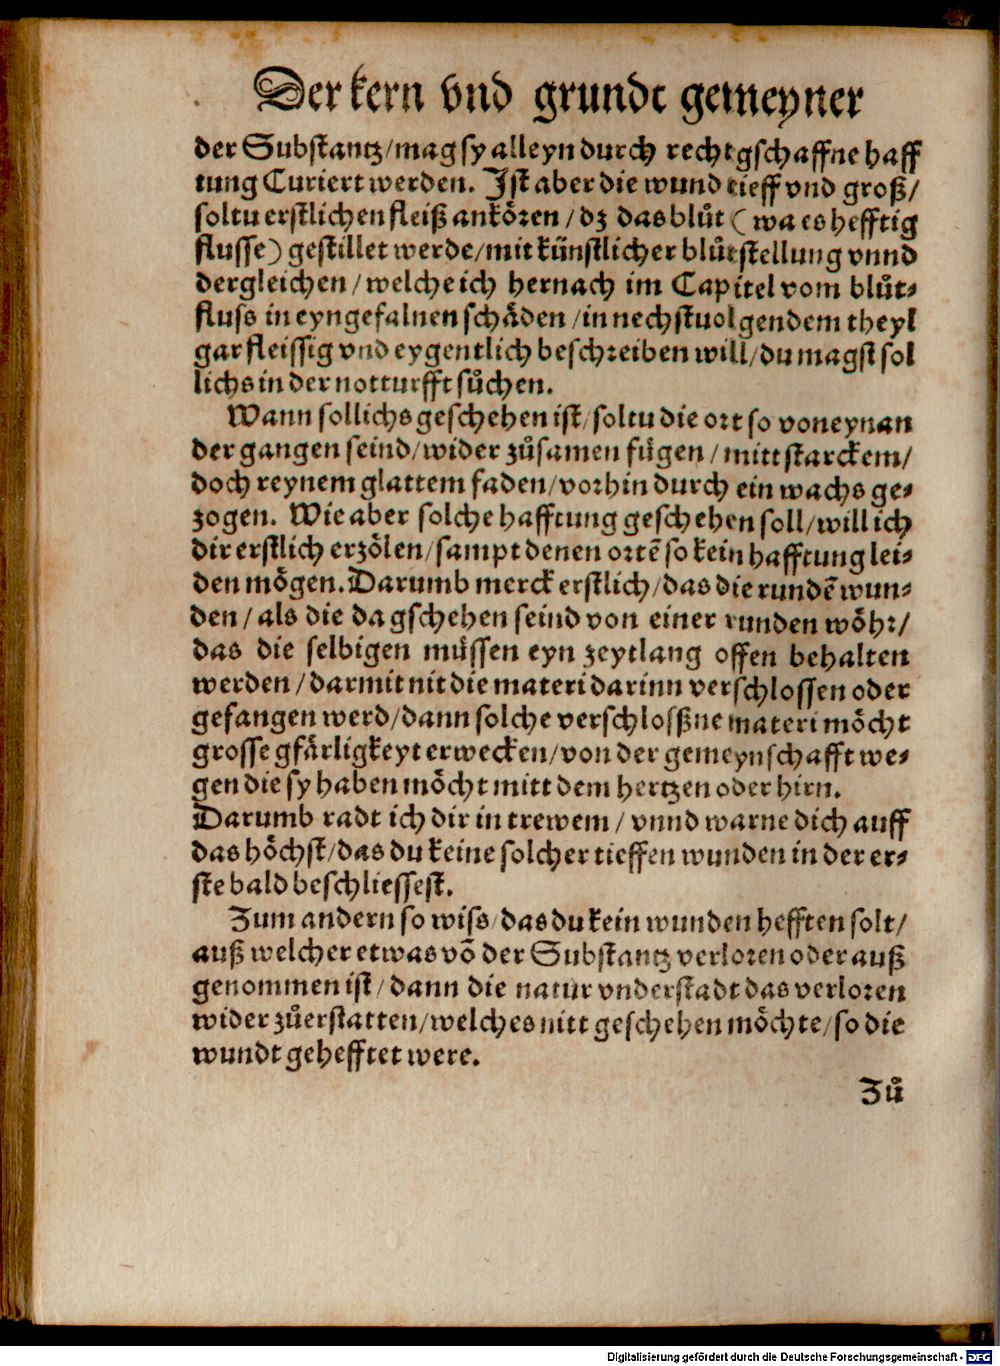 Der kern vnd grundt gemeyner
der Substantz/mag sy alleyn durch rechtgschaffne haff
tung Curiert werden. Ist aber die wund tieff vnd groß/
soltu erstlichen fleiß ankören/dz das blůt (wa es hefftig
flusse) gestillet werde/mit künstlicher blůtstellung vnnd
dergleichen/welche ich hernach im Capitel vom blůt⸗
fluss in eyngefalnen schäden/in nechstuolgendem theyl
gar fleissig vnd eygentlich beschreiben will/du magst sol
lichs in der notturfft sůchen.
Wann sollichs geschehen ist/soltu die ort so von eynan
der gangen seind/wider zůsamen fügen/mitt starckem/
doch reynem glattem faden/vorhin durch ein wachs ge⸗
zogen. Wie aber solche hafftung geschehen soll/will ich
dir erstlich erzölen/sampt denen ortē so kein hafftung lei⸗
den mögen. Darumb merck erstlich/das die rundē wun⸗
den/als die da gschehen seind von einer runden wöhr/
das die selbigen müssen eyn zeytlang offen behalten
werden/darmit nit die materi darinn verschlossen oder
gefangen werd/dann solche verschloßne materi möcht
grosse gfärligkeyt erwecken/von der gemeynschafft we⸗
gen die sy haben möcht mitt dem hertzen oder hirn.
Darumb radt ich dir in trewem/vnnd warne dich auff
das höchst/das du keine solcher tieffen wunden in der er⸗
ste bald beschliessest.
Zum andern so wiss/das du kein wunden hefften solt/
auß welcher etwas vō der Substantz verloren oder auß
genommen ist/dann die natur vnderstadt das verloren
wider zůerstatten/welches nitt geschehen möchte/so die
wundt gehefftet were.
Zů
Digitalisierung gefördert durch die Deutsche Forschungsgemeinschaft - DFG